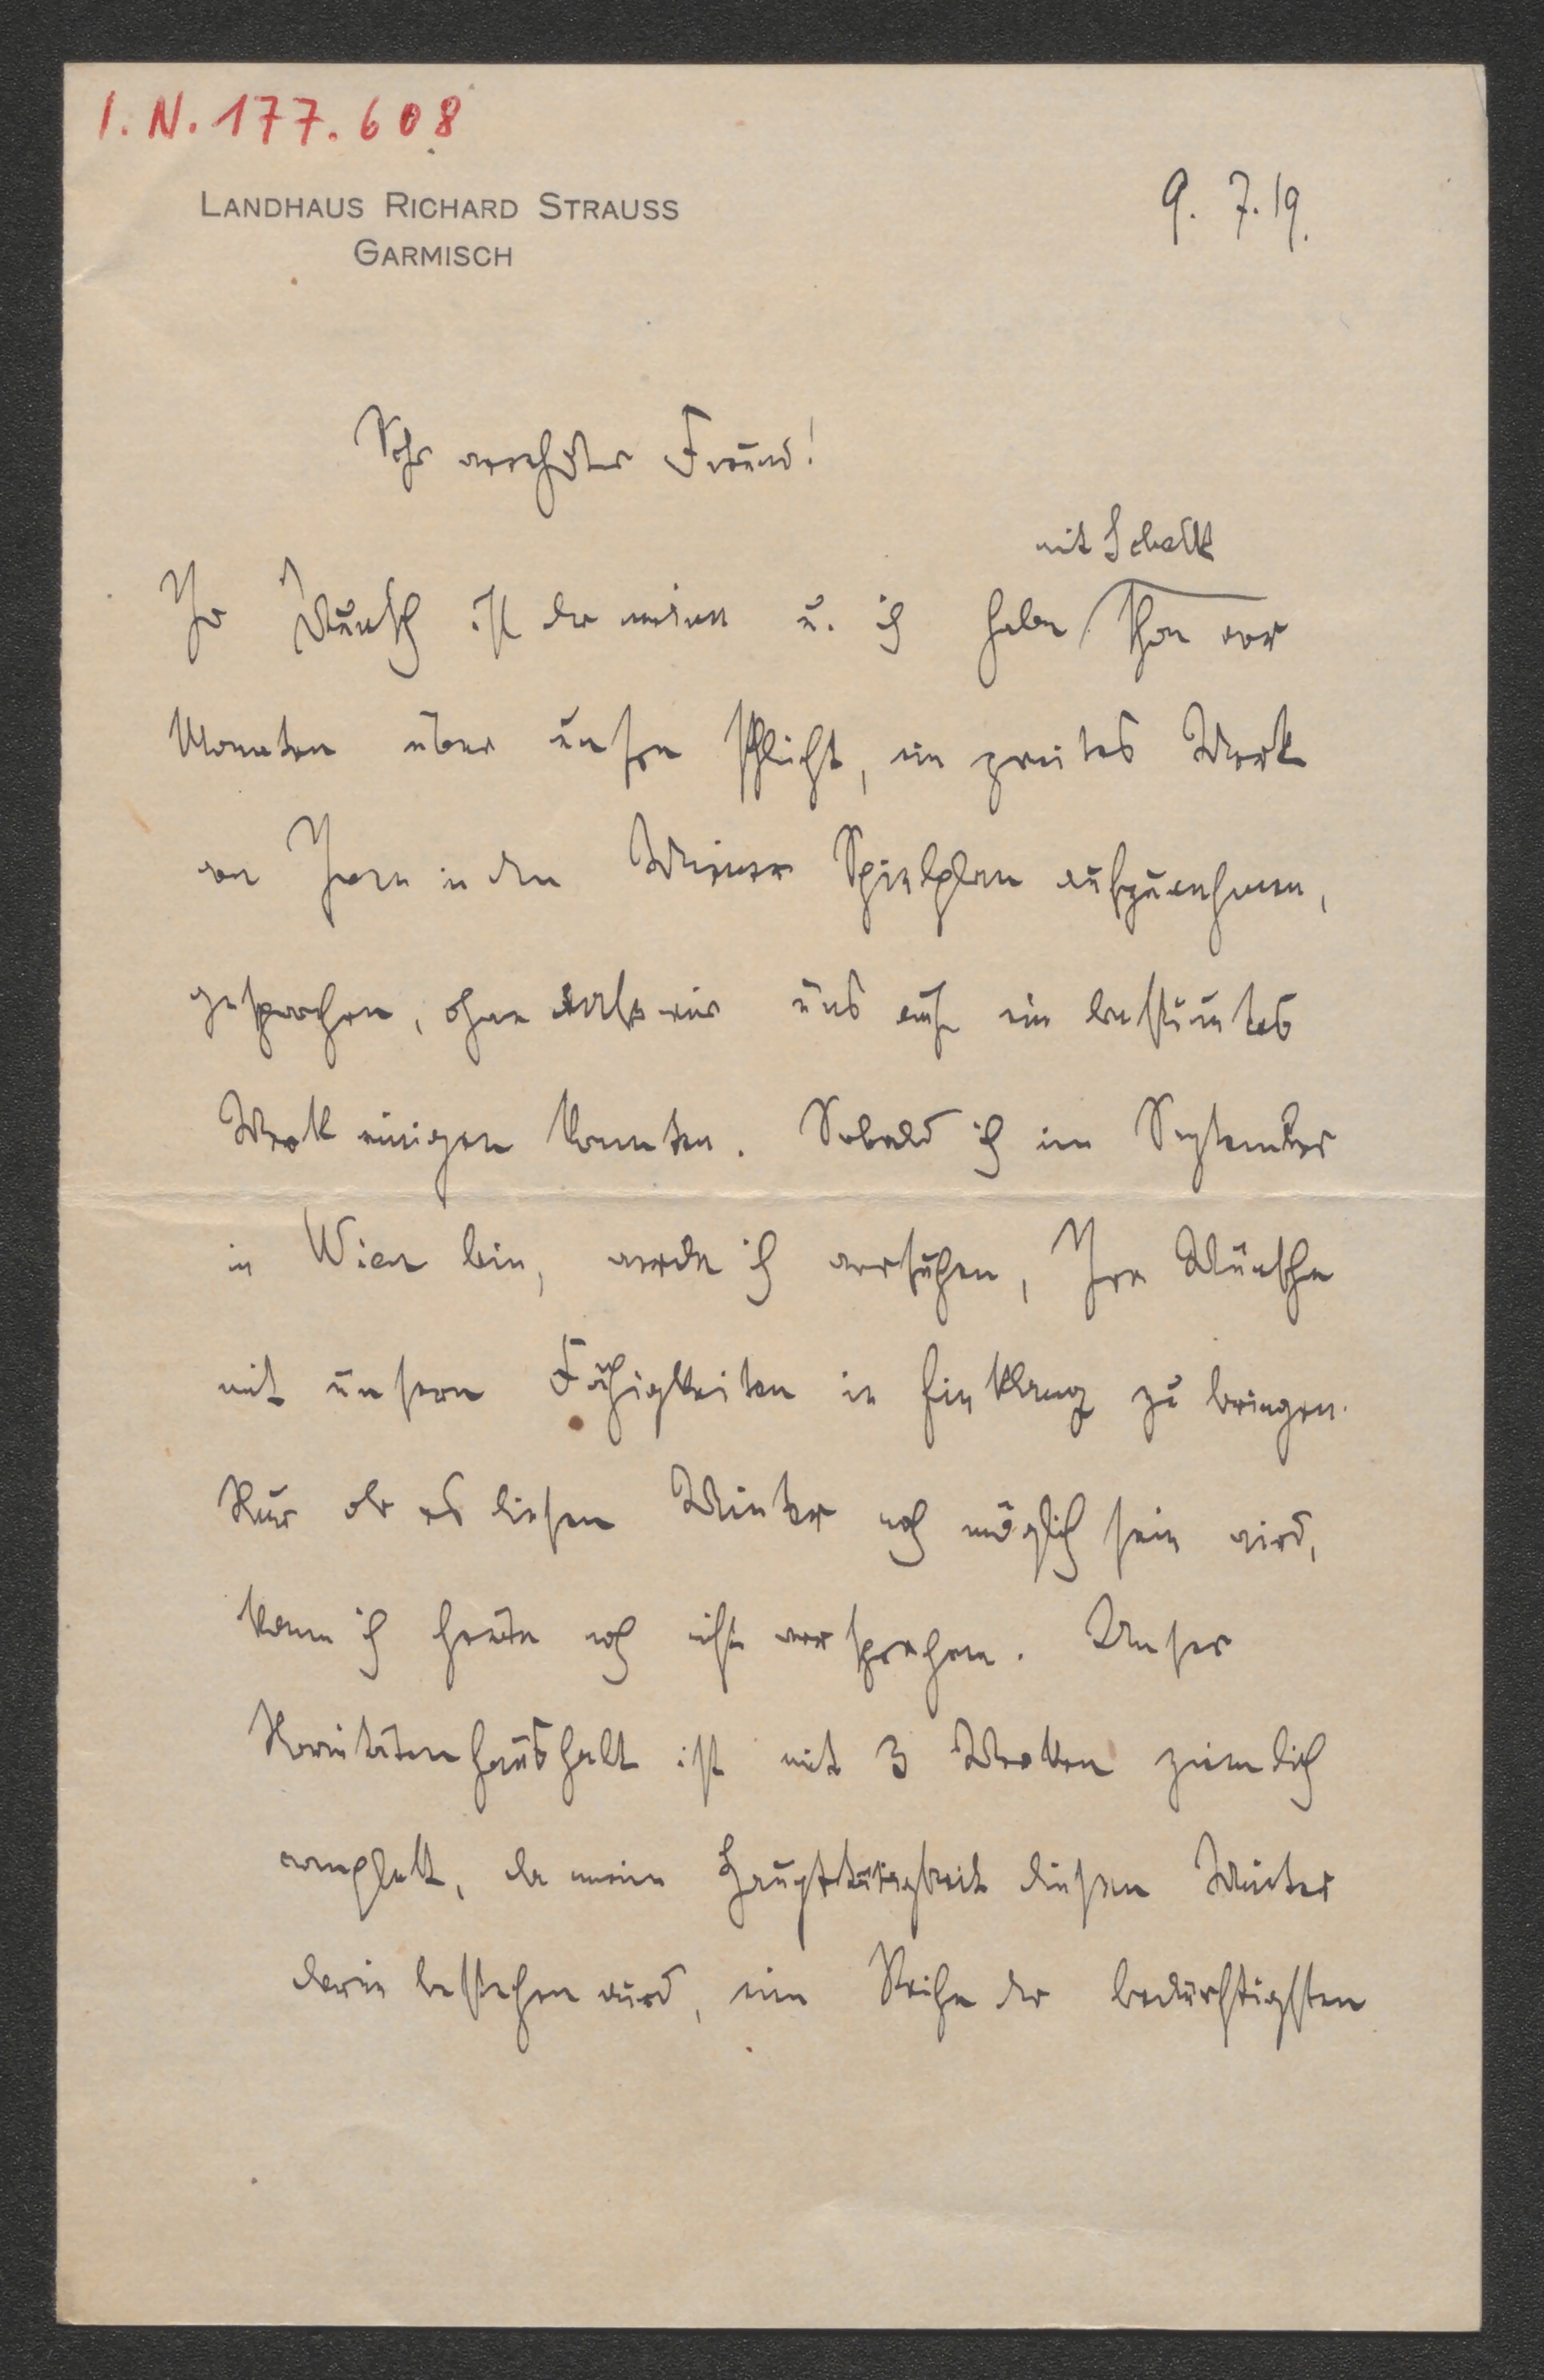 I. N. 177.608
LANDHAUS RICHARD STRAUSS
GARMISCH
9. 7. 19.
Sehr verehrter Freund!
mit Schalk
Ihr Wunsch ist der meine u. ich habe schon vor
Monaten über unsre Pflicht, ein zweites Werk
von Ihnen in den Wiener Spielplan aufzunehmen,
gesprochen, ohne daß wir uns auf ein bestimmtes
Werk einigen konnten. Sobald ich im September
in Wien bin, werde ich versuchen, Ihre Wünsche
mit unsern Fähigkeiten in Einklang zu bringen.
Nur ob es diesen Winter noch möglich sein wird,
kann ich heute noch nicht versprechen. Unser
Novitätenhaushalt ist mit 3 Werken ziemlich
complett, da meine Haupttätigkeit diesen Winter
darin bestehen wird, eine Reihe der bedürftigsten